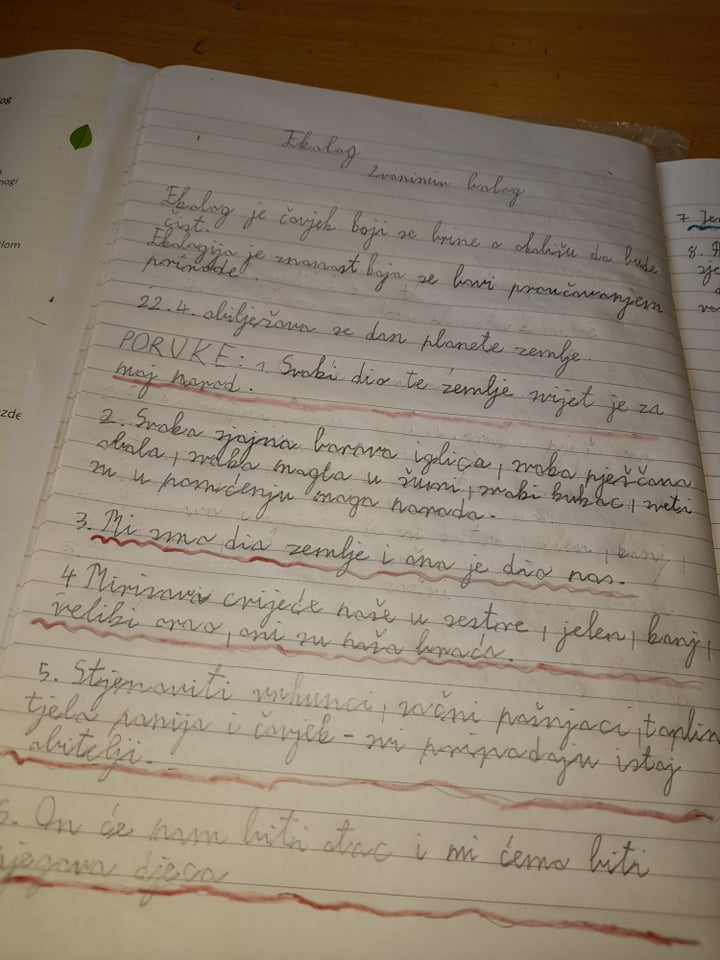 og
mogi
lom
zde
Ekolog
Zvonimir balog
Ekolog je čovjek koji se brine o okolišu da bude
čist.
Ekologija je znanost koja se bavi proučavanjem
prirode.
22.4. obilježava se dan planete zemlje.
PORUKE: 1. Svaki dio te zemlje svijet je za
moj narod.
2. Svaka sjajna borova iglica, svaka pješčana
obala, svaka magla u šumi, svaki kukac, sveti
su u pamćenju moga naroda.
3. Mi smo dio zemlje i ona je dio nas.
4 Mirisavi cvijeće naše u sestre, jelen, konj,
veliki orao, oni su naša braća.
5. Stjenoviti vrhunci, sočni pašnjaci, toplin
tjela ponija i čovjek - svi pripadaju istoj
obitelji.
6. On će nam biti otac i mi ćemo biti
njegova djeca
7 Jer
8.